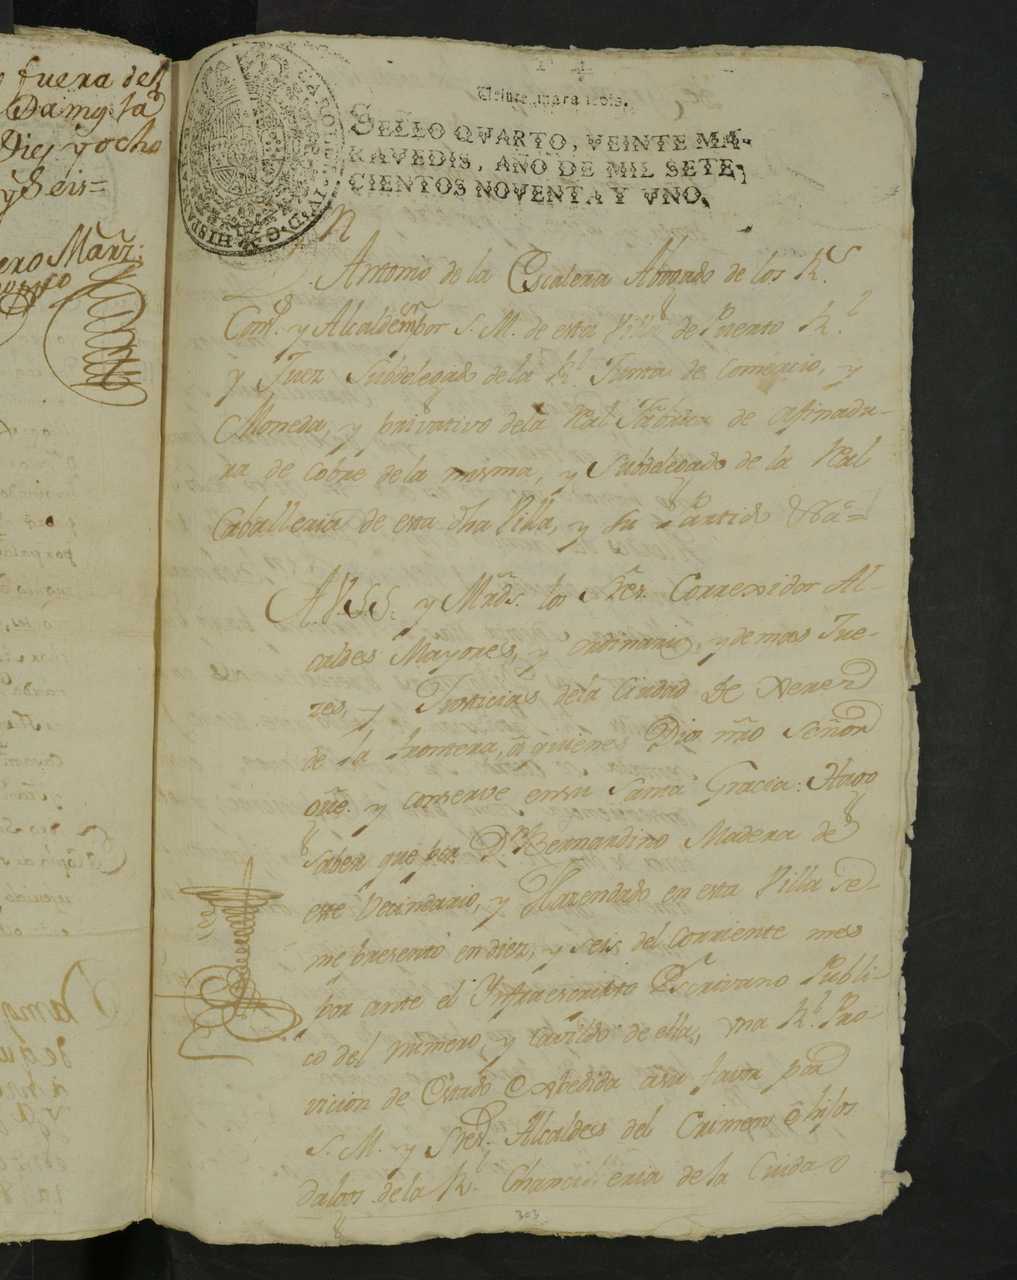 fuera del
Damos fa
Diez y ocho
y Seis=
ero Marz:
Veinte maravedis.
SELLO QVARTO, VEINTE MA-
RAVEDIS, AÑO DE MIL SETE-
CIENTOS NOVENTA Y VNO.
CAROLUS IV D. G. HISPANIAR REX
Antonio de la Escalera Abogado de los R.s
Con.s y Alcalde m.or por S. M. de esta Villa de Puerto R.l
y Juez Subdelegado de la R.l Junta de Comercio, y
Moneda, y privativo dela Real Fabrica de afinadu-
ra de cobre de la misma, y Subdelegado de la Real
Caballeria de esta dha Villa, y su Partido &a=
A V. SS. y Mrds. los Sres. Correxidor Al-
caldes Mayores, y ordinarios, y demas Jue-
zes, y Justicias dela Ciudad de Xerez
de la frontera, â quienes Dios nro Señor
gue. y conserve en su Santa Gracia: Hago
saber que por Dn Bernardino Madera de
este Vecindario, y Hazendado en esta Villa se
me presentó en diez, y seis del corriente mes
por ante el Infraescripto Escrivano Publi-
co del numero, y Cavildo de ella, una R.l Pro-
vicion de Estado Expedida a su favor por
S. M. y Sres. Alcaldes del Crimen é hijos
dalgo dela R.l Chancilleria de la Ciudad
303